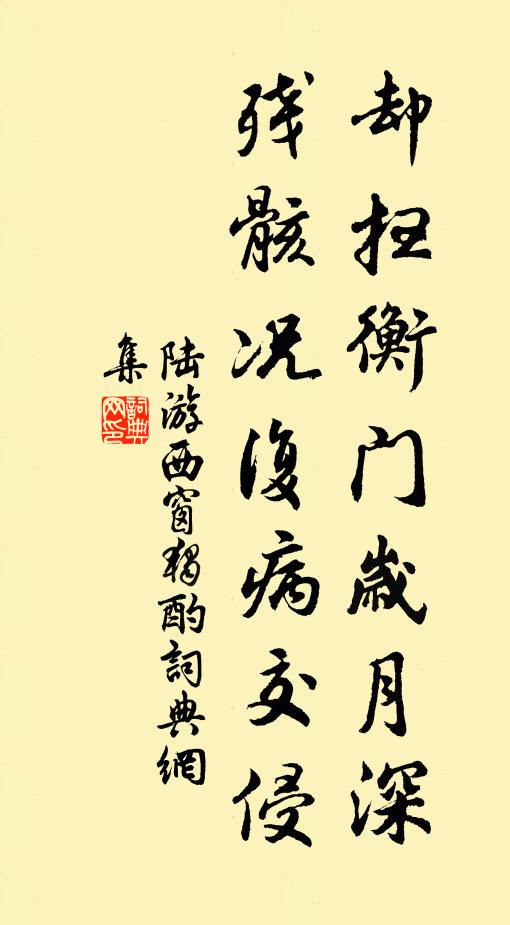 却扫衡门岁月深
残骸况复病交侵
陆游西窗独酌词典网
集
词典
网印